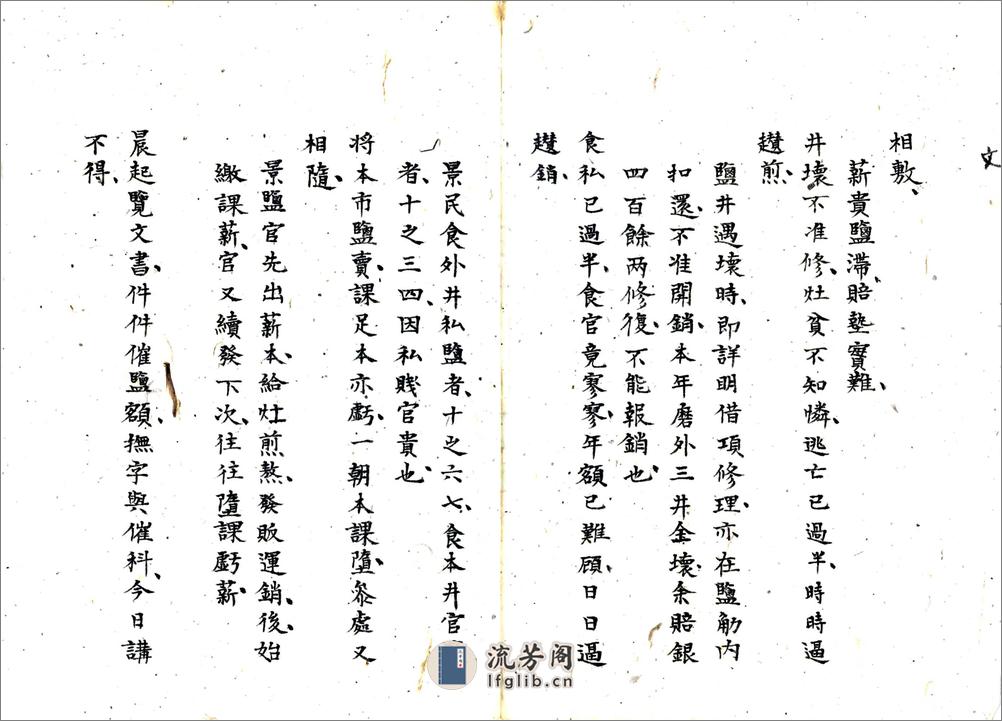 文
相敷、
薪貴鹽滯、賠墊實難、
井壞不准修、灶貧不知憐、逃亡已過半、時時逼
趲煎、
鹽井遇壞時、即詳明借項修理、亦在鹽觔內
扣還、不准開銷、本年磨外三井全壞、余賠銀
四百餘两修復、不能報銷也、
食私已過半、食官竟寥寥、年額已難顧、日日逼
趲銷、
景民食外井私鹽者、十之六七、食本井官
者、十之三四、因私賤官貴也、
將本市鹽賣、課足本亦虧、一朝本課墮、叅處又
相隨、
景鹽官先出薪本、給灶煎熬、發販運銷、後、始
繳課薪、官又續發下次、往往墮課虧薪、
晨起覽文書、件件催鹽額、撫字與催科、今日講
不得、
流芳阁
lfglib.cn